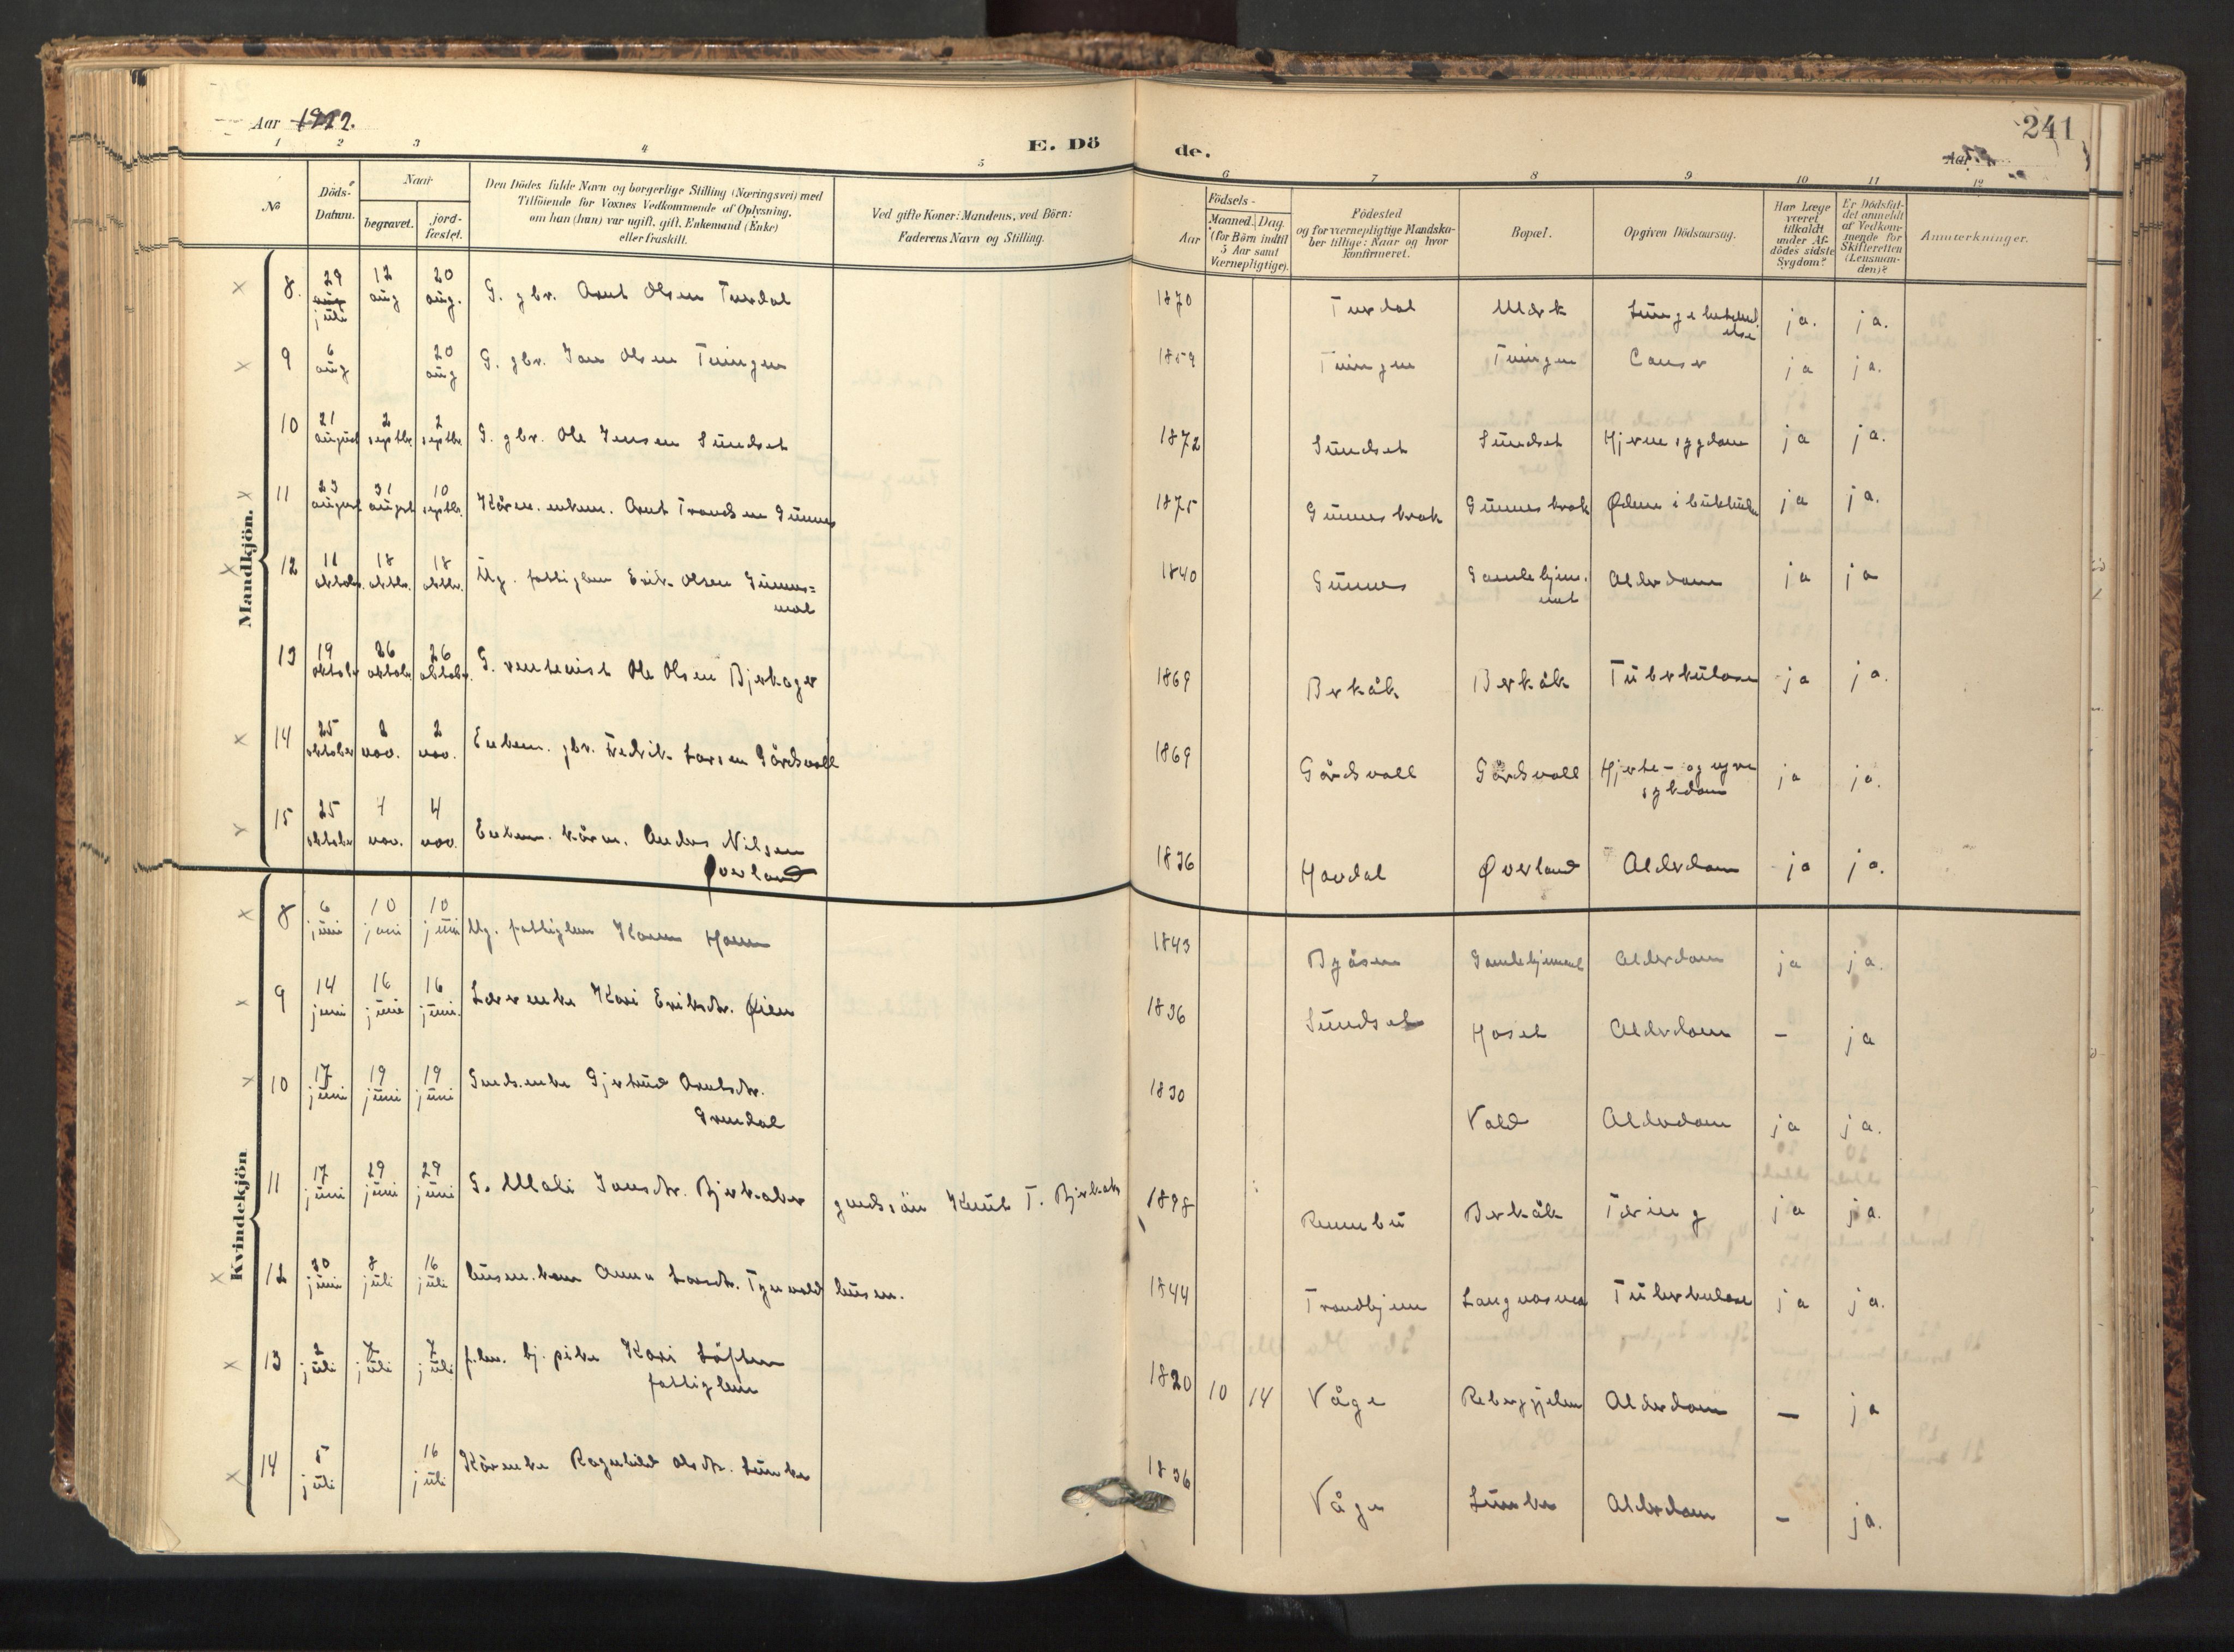 Aar 1922.
E. Dö
de.
241
Aar
1 2 3 4 5 6 7 8 9 10 11 12
No
Döds-
Datum.
Naar
begravet.
jord-
fæstet.
Den Dödes fulde Navn og borgerlige Stilling (Næringsvei) med
Tilföiende for Voxnes Vedkommende af Oplysning,
om han (hun) var ugift, gift, Enkemand (Enke)
eller fraskilt.
Ved gifte Koner: Mandens, ved Börn:
Faderens Navn og Stilling.
Födsels-
Aar
Maaned. Dag.
(for Börn indtil
5 Aar samt
Værnepligtige).
Födested
og for værnepligtige Mandska-
ber tillige: Naar og hvor
konfirmeret.
Bopæl.
Opgiven Dödsaarsag.
Har Læge
været
tilkaldt
under Af-
dödes sidste
Sygdom?
Er Dödsfal-
det anmeldt
af Vedkom-
mende for
Skifteretten
(Lensman-
den)?
Anmærkninger.
Mandkjön.
8. 29 juli 12 aug 20 aug. G. gbr. Arnt Olsen 1870 ja. ja.
9 6 aug 20 aug G. gbr. Jon Olsen 1859 Canser ja ja.
10 21 august 2 septbr. 2 septbr. G. gbr. Ole Jensen Sundset 1872 Sundset Sundset Hjernesygdom ja ja.
11 23 august 31 august 10 septbr. Kårm. enkem. Arnt Trondsen Gunnes 1875 Gunneskrok Gunneskrok Ødem i bukhulen ja ja.
12 11 oktober 18 oktbr. 18 oktbr. Ug. fattiglem Erik Olsen Gunnes=
mal 1840 Gunnes Gamlehjem-
met Alderdom ja ja
13 19 oktober 26 oktober 26 oktober G. rentenist Ole Olsen Bjerkager 1869 Berkåk Berkåk Tuberkulose ja ja.
14 25 oktober 2 nov. 2 nov. Enkem. gbr. Fredrik Larsen Gårdsvoll 1869 Gårdsvoll Gårdsvoll Hjerte- og nyre
sykdom ja ja.
15 25 oktober 4 nov. 4 nov. Enkem. kårm. Anders Nilsen
Øverland 1836 Havdal Øverland Alderdom ja ja.
Kvindekjön
8 6 juni 10 juni 10 juni Ug. fattiglem Karen 1843 Byåsen Gamlehjemmet Alderdom ja ja.
9 14 juni 16 juni 16 juni. Kari Eriksdtr. Øien 1836 Sundset Hoset Alderdom – ja
10 17 juni 19 juni 19 juni Gjertrud Arntsdtr.
Grindal 1830 Vold Alderdom ja ja.
11 17 juni 29 juni 29 juni G. Mali Jonsdtr. Bjerkaker Knut T. Bjerkaker 1898 Rennbu Berkåk Tæring ja ja.
12 30 juni 8 juli 16 juli kone Anna Larsdtr. 1844 Trondhjem Tuberkulose ja ja.
13 2 juli 7 juli 7 juli pike Kari Løften
fattiglem 1820 10 14 Våge Alderdom – ja
14 5 juli 16 juli Kårenke Ragnhild Olsdtr. 1836 Våge Alderdom – ja.